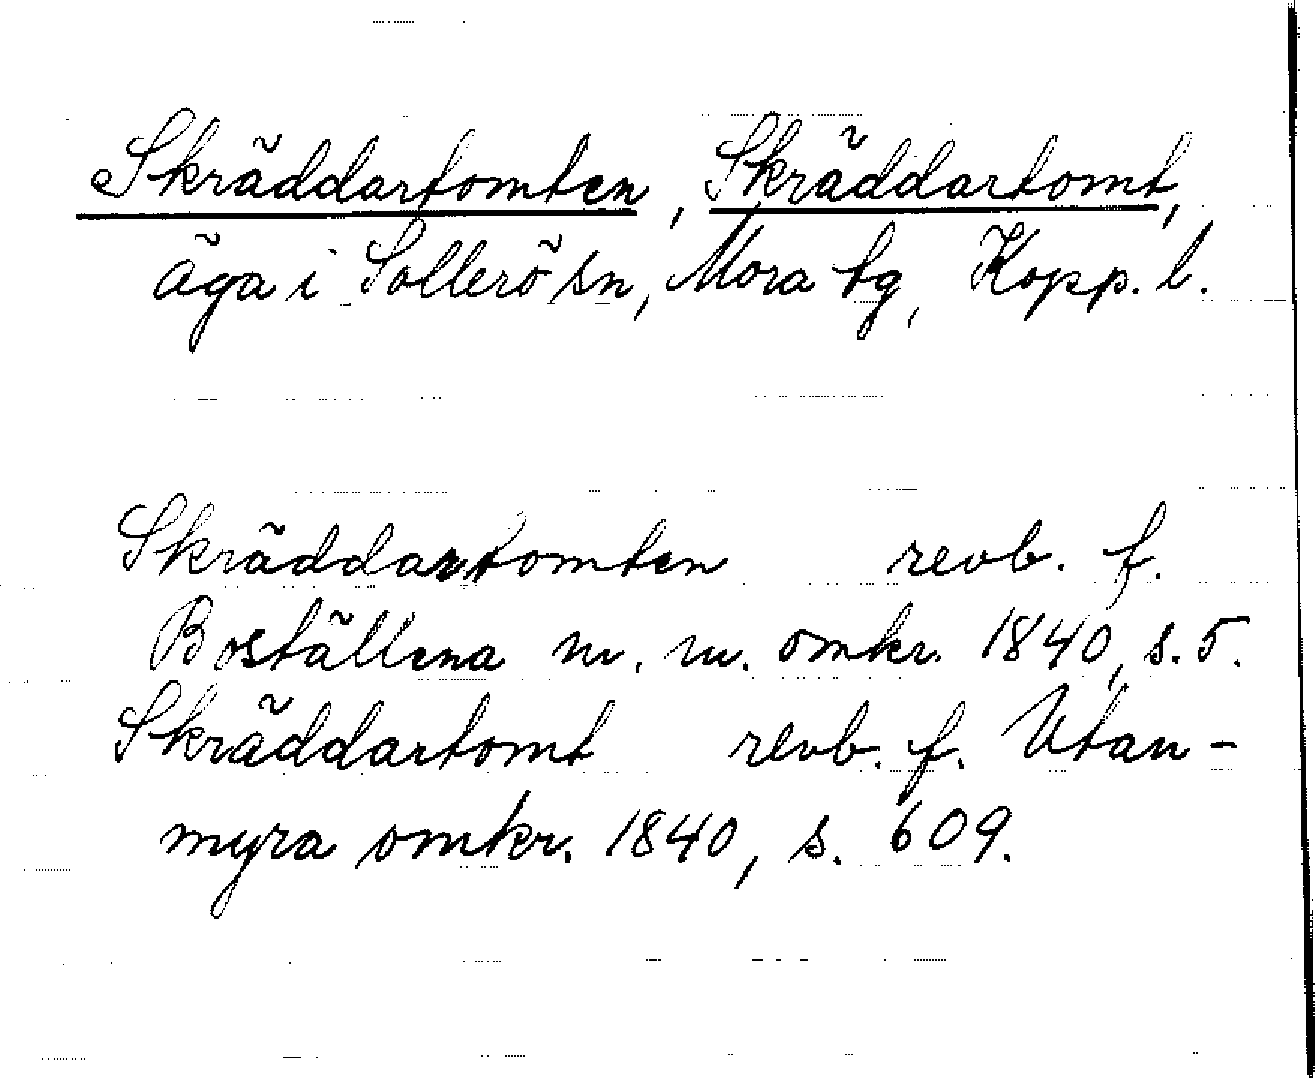 Skräddartomten, Skräddartomt,
äga i Sollerö sn, Mora tg, Kopp. l.
Skräddartomten revb. f.
Boställena m. m. omkr. 1840, s. 5.
Skräddartomt revb. f. Utan-
myra omkr. 1840, s. 609.